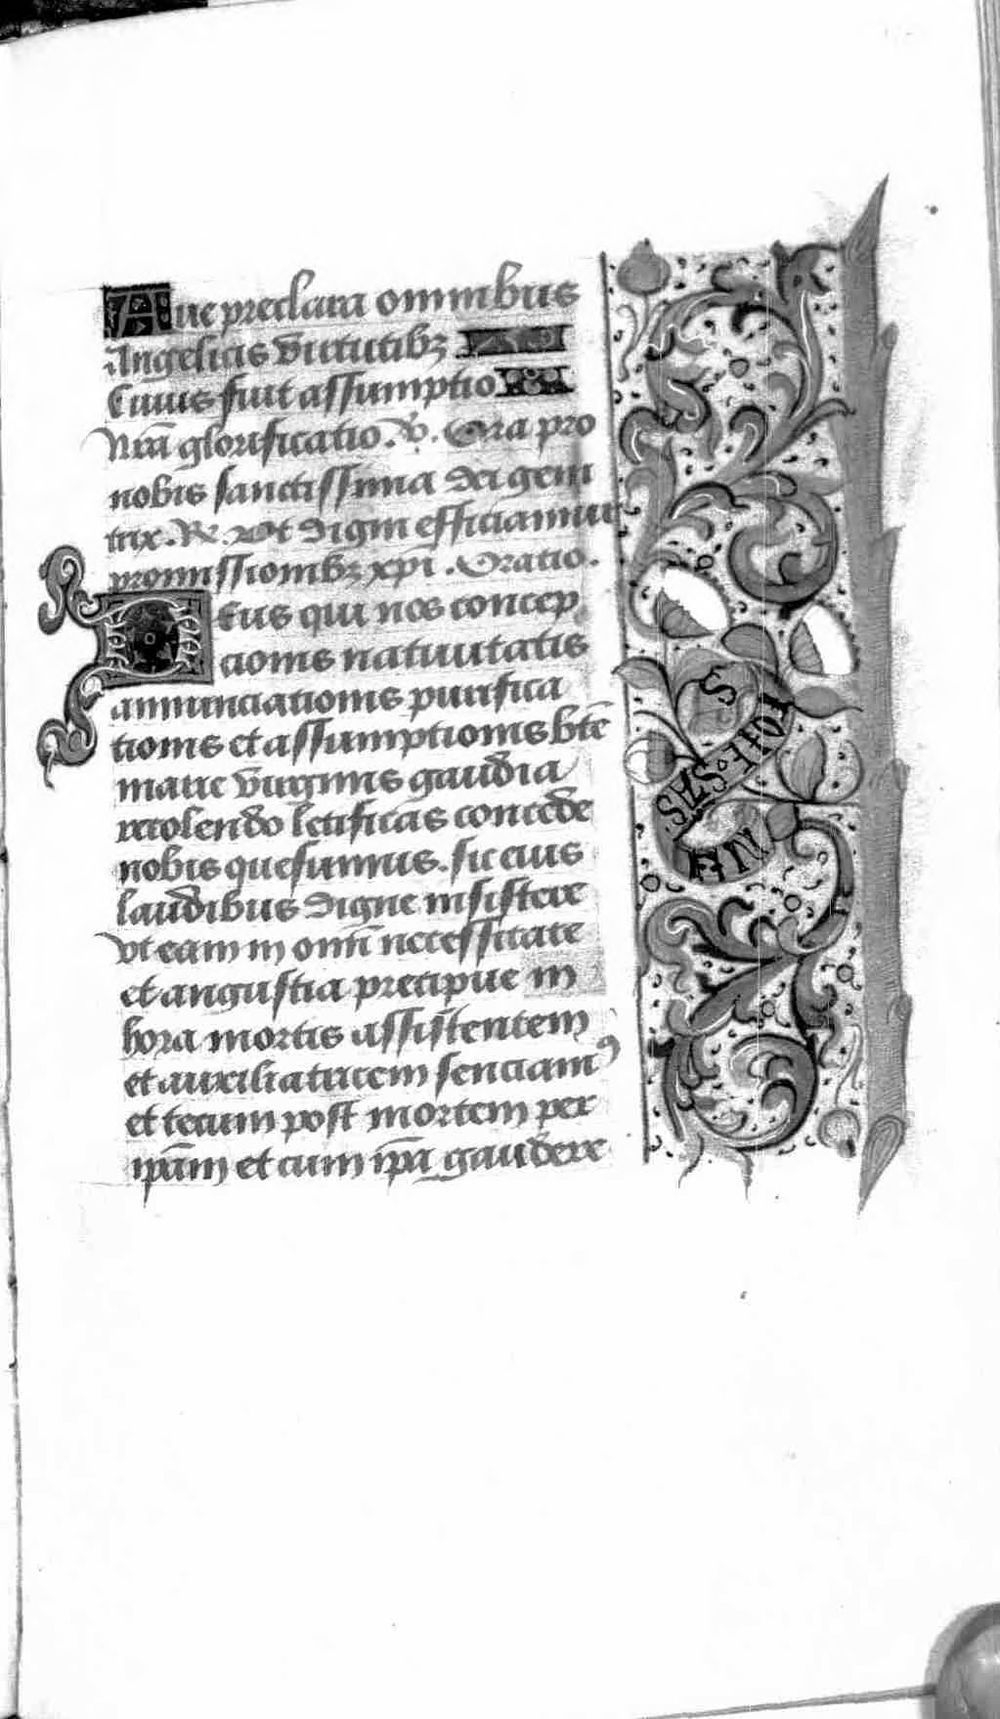 Aue preclara omnibus
Angelicis virtutibꝫ
Cuius fuit assumptio
Nr̄a glorificatio. v̄. Ora pro
nobis sanctissima dei geni
trix. R̄. Vt digni efficiamur
promissiombꝫ xp̄i. Oratio.
Deus qui nos concep
cionis natiuitatis
annunciationis purifica
tionis et assumptionis btē
marie virginis gaudia
recolendo letificas concede
nobis quesumus. sic eius
laudibus digne insistere
vt eam in omī necessitate
et angustia precipue in
hora mortis assistentem
et auxiliatricem senciamꝰ
et tecum post mortem per
ip̄am et cum ip̄a gaudere